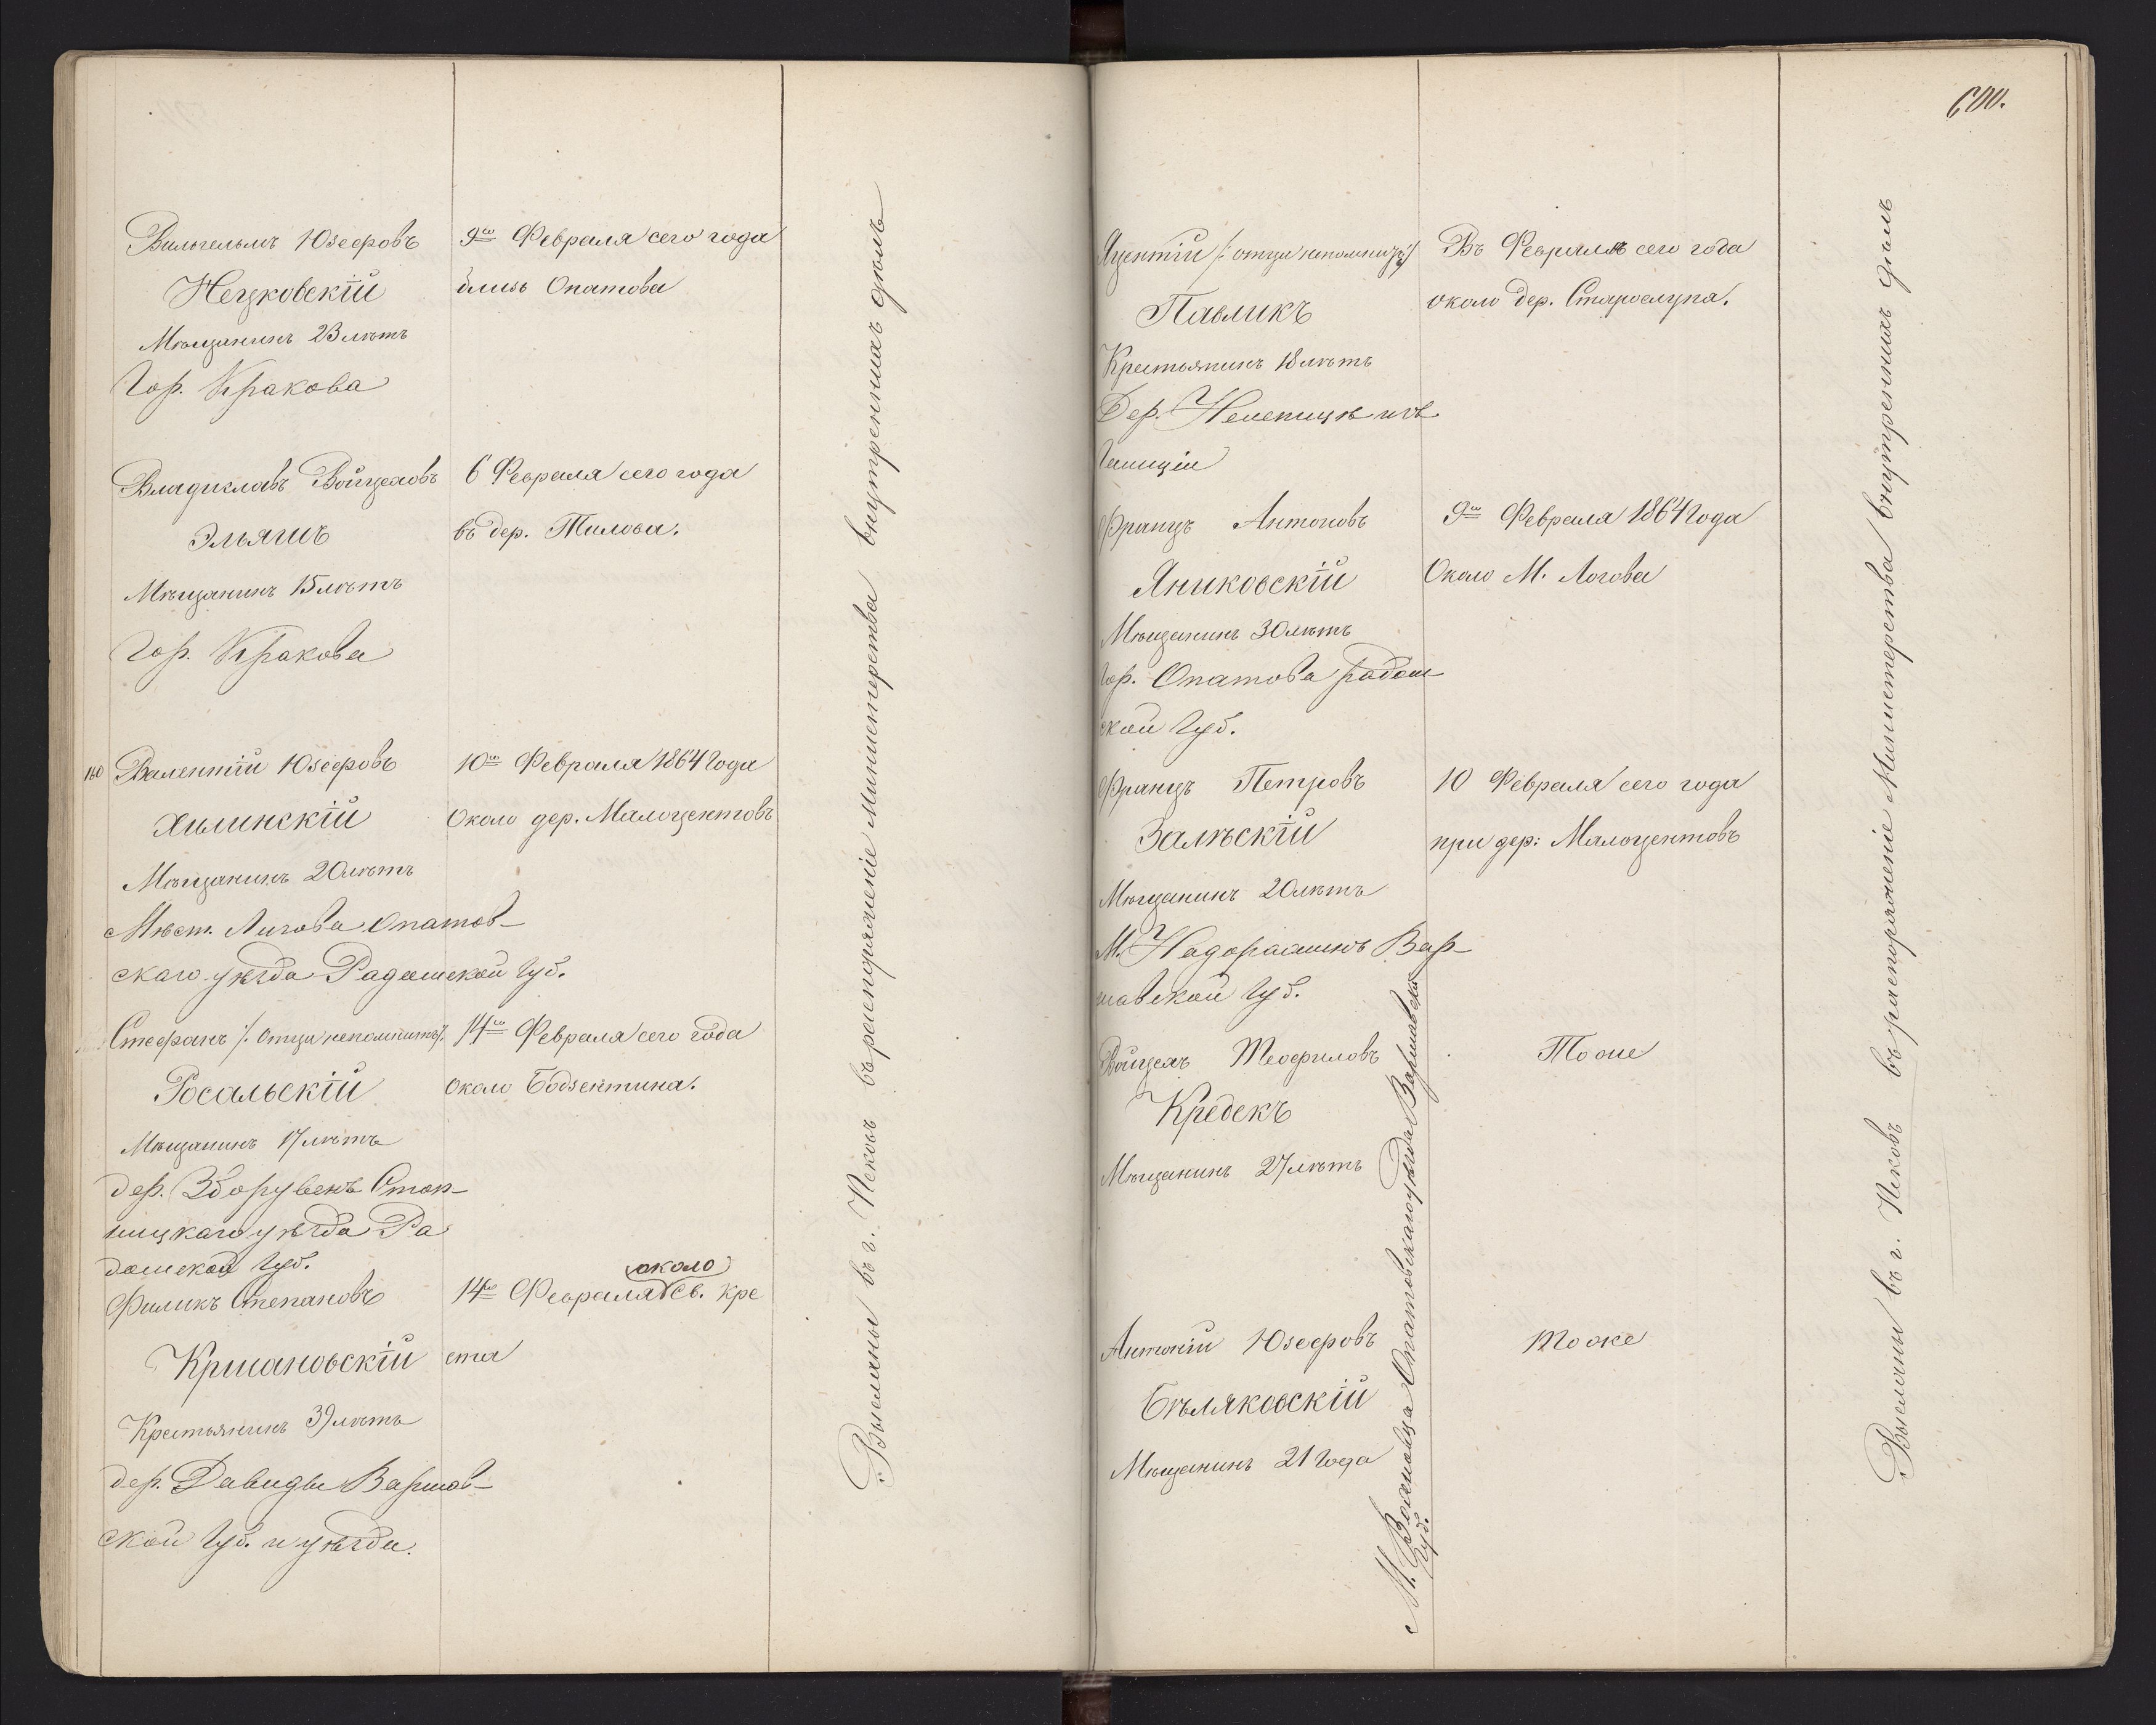 Вильгельмъ Юзефовъ
Нецковскій
Мѣщанинъ 23 лѣтъ
Гор. Кракова
9го Февраля сего года
близь Опатова
Владиславъ Войцеховъ
Эльяшъ
Мѣщанинъ 15 лѣтъ
Гор. Кракова
6 Февраля сего года
въ дер. Тилова.
160 Валентій Юзефовъ
Хилинскій
Мѣщанинъ 20 лѣтъ
Мѣст. Лагова Опатов-
скаго уѣзда Радомской Губ.
10го Февраля 1864 Года
Около дер. Малоцентовъ
Стефанъ /: Отца непомнитъ:/
Росальскій
Мѣщанинъ 17 лѣтъ
дер. Зборувекъ Стоп-
ницкаго уѣзда Ра
домской Губ.
14го Февраля сего года
около Бодзентина.
Филикъ Степановъ
Кршановскій
Крестьянинъ 39 лѣтъ
дер. Давиды Варшав-
ской Губ. и уѣзда.
14го Февраля около Св. Кре
ста
Высланы въ г. Псковъ въ распоряженіе Министерства внутреннихъ дѣлъ
600.
Яцентій /: отца непомнитъ:/
Павликъ
Крестьянинъ 18 лѣтъ
Дер. изъ
Галиціи
Въ Февралѣ сего года
около дер. Старослупа.
Францъ Антоновъ
Яниковскій
Мѣщанинъ 30 лѣтъ
Гор. Опатова Радом
ской Губ.
9го Февраля 1864 Года
Около М. Логова
Францъ Петровъ
Залѣскій
Мѣщанинъ 20 лѣтъ
М. Вар-
шавской Губ.
10 Февраля сего года
при дер: Малоцентовъ
Войцехъ Теофиловъ
Кредекъ
Мѣщанинъ 27 лѣтъ
Тоже
Антоній Юзефовъ
Бѣляковскій
Мѣщанинъ 21 Года
тоже
М. Опатовскаго уѣзда Варшавской
Губ.
Высланы въ г. Псковъ въ распоряженіе Министерства внутреннихъ дѣлъ